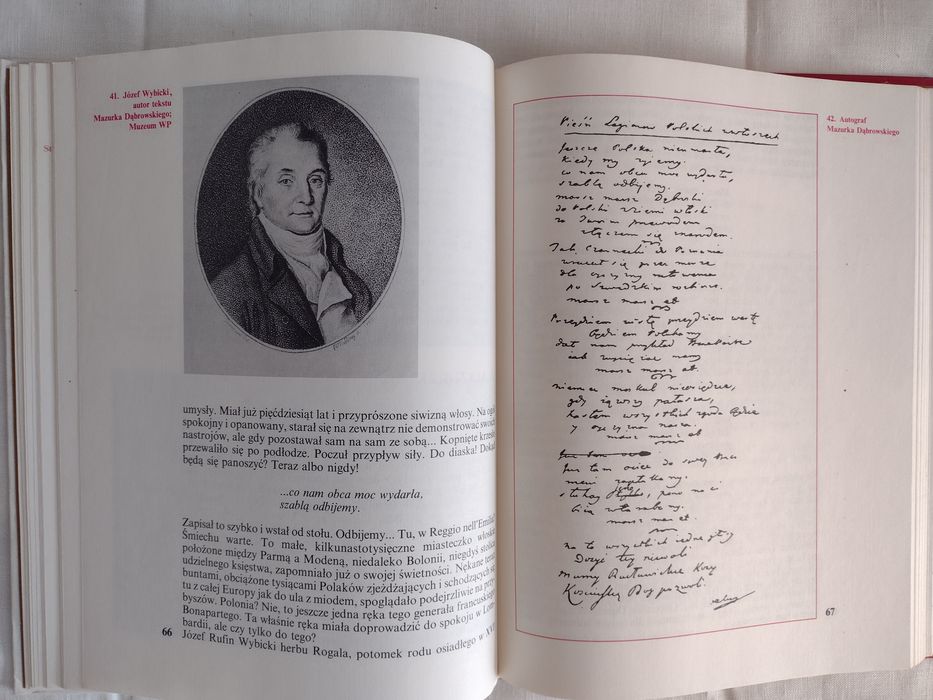 41. Józef Wybicki,
autor tekstu
Mazurka Dąbrowskiego;
Muzeum WP
umysły. Miał już pięćdziesiąt lat i przyprószone siwizną włosy. Na ogół
spokojny i opanowany, starał się na zewnątrz nie demonstrować swoich
nastrojów, ale gdy pozostawał sam na sam ze sobą... Kopnięte krzesło
przewaliło się po podłodze. Poczuł przypływ siły. Do diaska! Dokąd
będą się panoszyć? Teraz albo nigdy!
...co nam obca moc wydarła,
szablą odbijemy.
Zapisał to szybko i wstał od stołu. Odbijemy... Tu, w Reggio nell'Emilia?
Śmiechu warte. To małe, kilkunastotysięczne miasteczko włoskie
położone między Parmą a Modeną, niedaleko Bolonii, niegdyś stolica
udzielnego księstwa, zapomniało już o swojej świetności. Nękane teraz
buntami, obciążone tysiącami Polaków zjeżdżających i schodzących się
tu z całej Europy jak do ula z miodem, spoglądało podejrzliwie na przy-
byszów. Polonia? Nie, to jeszcze jedna ręka tego generała francuskiego
Bonapartego. Ta właśnie ręka miała doprowadzić do spokoju w Lom-
bardii, ale czy tylko do tego?
Józef Rufin Wybicki herbu Rogala, potomek rodu osiadłego w XVI
66
42. Autograf
Mazurka Dąbrowskiego
Pieśń Legionów Polskich we Włoszech
Jeszcze Polska nie umarła,
kiedy my żyjemy.
co nam obca moc wydarła,
szablą odbijemy.
marsz marsz Dąbrowski
do Polski z ziemi włoski
za Twoim przewodem
złączem się z narodem.
Jak Czarnecki do Poznania
wracał się przez morze
dla ojczyzny ratowania
po Szwedzkim rozbiorze.
marsz marsz et
Przejdziem Wisłę przejdziem Wartę
będziem Polakamy
dał nam przykład Bonaparte
jak zwyciężać mamy
marsz marsz et.
niemiec moskal nieosiędzie,
gdy jąwszy pałasza,
hasłem wszystkich zgoda będzie
y ojczyzna nasza.
marsz marsz et
Już tam ociec do swej Basi
mówi zapłakany.
słuchaj jeno, pono nasi
biją w tarabany.
marsz marsz et.
na to wszystkich jedne głosy
Dosyć tej niewoli
mamy Racławickie Kosy
Kościuszkę Bóg pozwoli
67